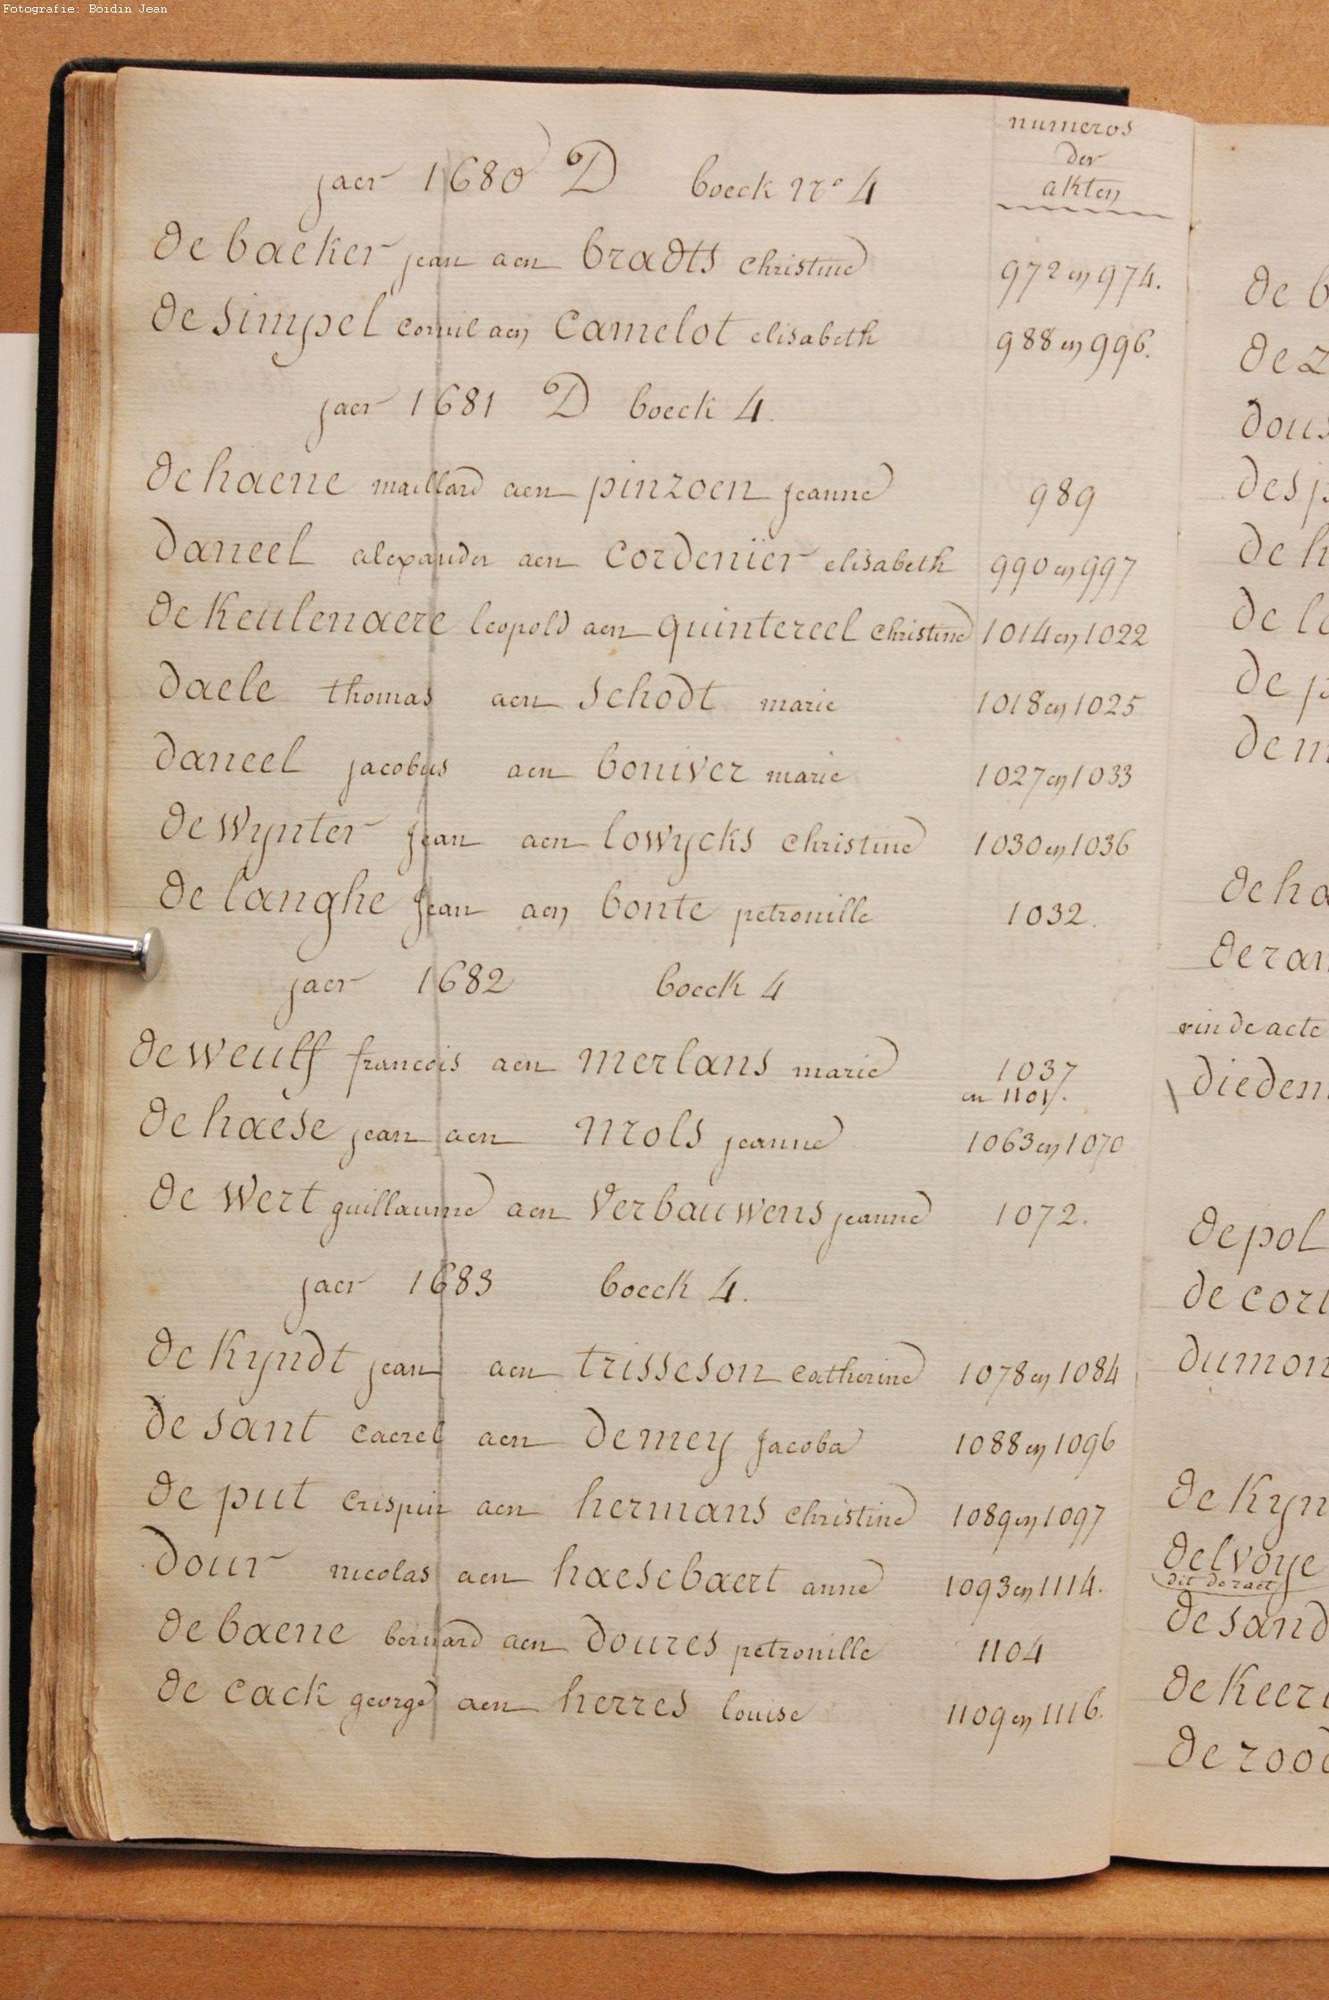 Fotografie: Boidin Jean
numeros
der
akten
jaer 1680 D boeck nro 4
de backer jean aen bradts christine 972 en 974.
de simpel cornil aen camelot elisabeth 988 en 996.
jaer 1681 D boeck 4.
de haene maillard aen pinzoen jeanne 989
daneel alexander aen cordenier elisabeth 990 en 997
de keulenaere leopold aen quintereel christine 1014 en 1022
daele thomas aen schodt marie 1018 en 1025
daneel jacobus aen boniver marie 1027 en 1033
de wynter jean aen lowycks christine 1030 en 1036
de langhe jean aen bonte petronille 1032.
jaer 1682 boeck 4
de weulf francois aen merlans marie 1037
en 1101.
de haese jean aen mols jeanne 1063 en 1070
de wert guillaume aen verbauwens jeanne 1072.
jaer 1683 boeck 4.
de kyndt jean aen trisseson catherine 1078 en 1084
de sant caerel aen demey jacoba 1088 en 1096
de put crispin aen hermans christine 1089 en 1097
dour nicolas aen haesebaert anne 1093 en 1114.
de baene bernard aen doures petronille 1104
de cack george aen herres louise 1109 en 1116.
de b
de z
dous
desp
de h
de la
de p
de m
de ha
de ran
vin de acte
dieden
de pol
de cort
dumon
de kyn
delvoye
dit de raet
de sand
de keer
de rood